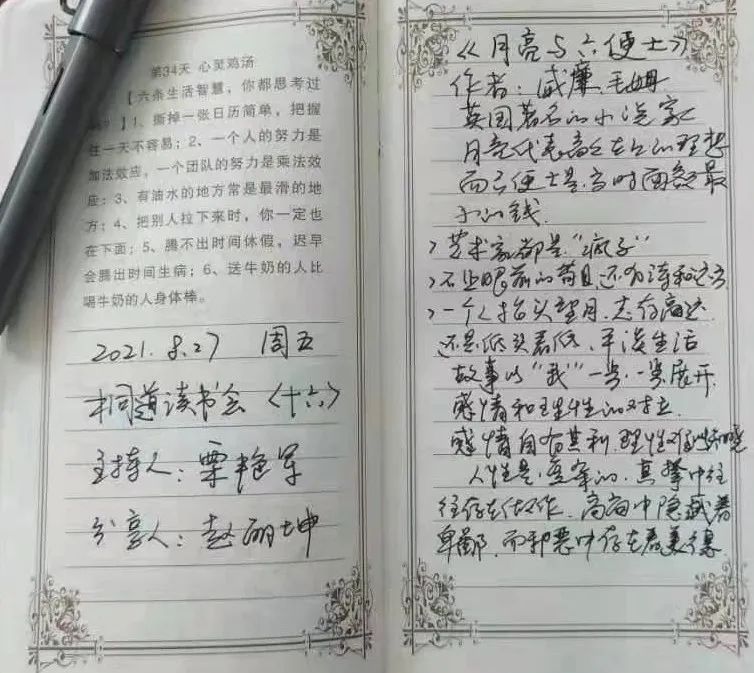 第34天 心灵鸡汤
【六条生活智慧，你都思考过
？】1、撕掉一张日历简单，把握
住一天不容易；2、一个人的努力是
加法效应，一个团队的努力是乘法效
应；3、有油水的地方常是最滑的地
方；4、把别人拉下来时，你一定也
在下面；5、腾不出时间休假，迟早
会腾出时间生病；6、送牛奶的人比
喝牛奶的人身体棒。
2021.8.27 周五
同道读书会〈十六〉
主持人：栗艳军
分享人：赵丽坤
《月亮与六便士》
作者：威廉毛姆
英国著名的小说家
月亮代表高高在上的理想
而六便士是当时面额最
小的钱.
> 艺术家都是"疯子"
> 不止眼前的苟且还有诗和远方
> 一个人抬头望月、志存高远
还是低头看低、平淡生活
故事以"我"一步一步展开
感情和理性的对立.
感情自有其利，理性难以知晓
人性是复杂的，真挚中往
往存在做作，高尚中隐藏着
卑鄙，而邪恶中存在着美德